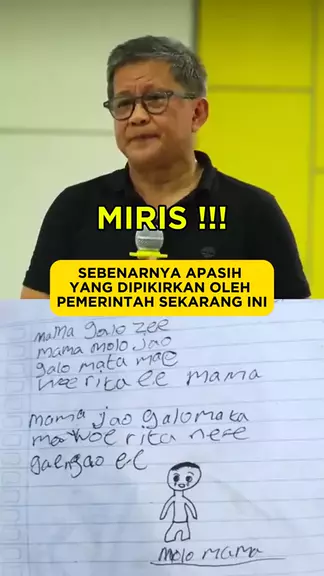 MIRIS !!!
SEBENARNYA APASIH
YANG DIPIKIRKAN OLEH
PEMERINTAH SEKARANG INI
mama galo zee
mama molo jao
galo mata mae
woe rita ee mama
mama jao galo mata
mae woe rita nee
gae ngao ee
molo mama